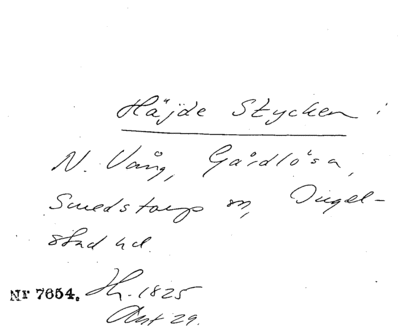 Häjde Stycken i
N. Vång, Gårdlösa,
Smedstorps sn, Ingel-
stad hd.
Nr 7654. Hs. 1825
Ant 29.